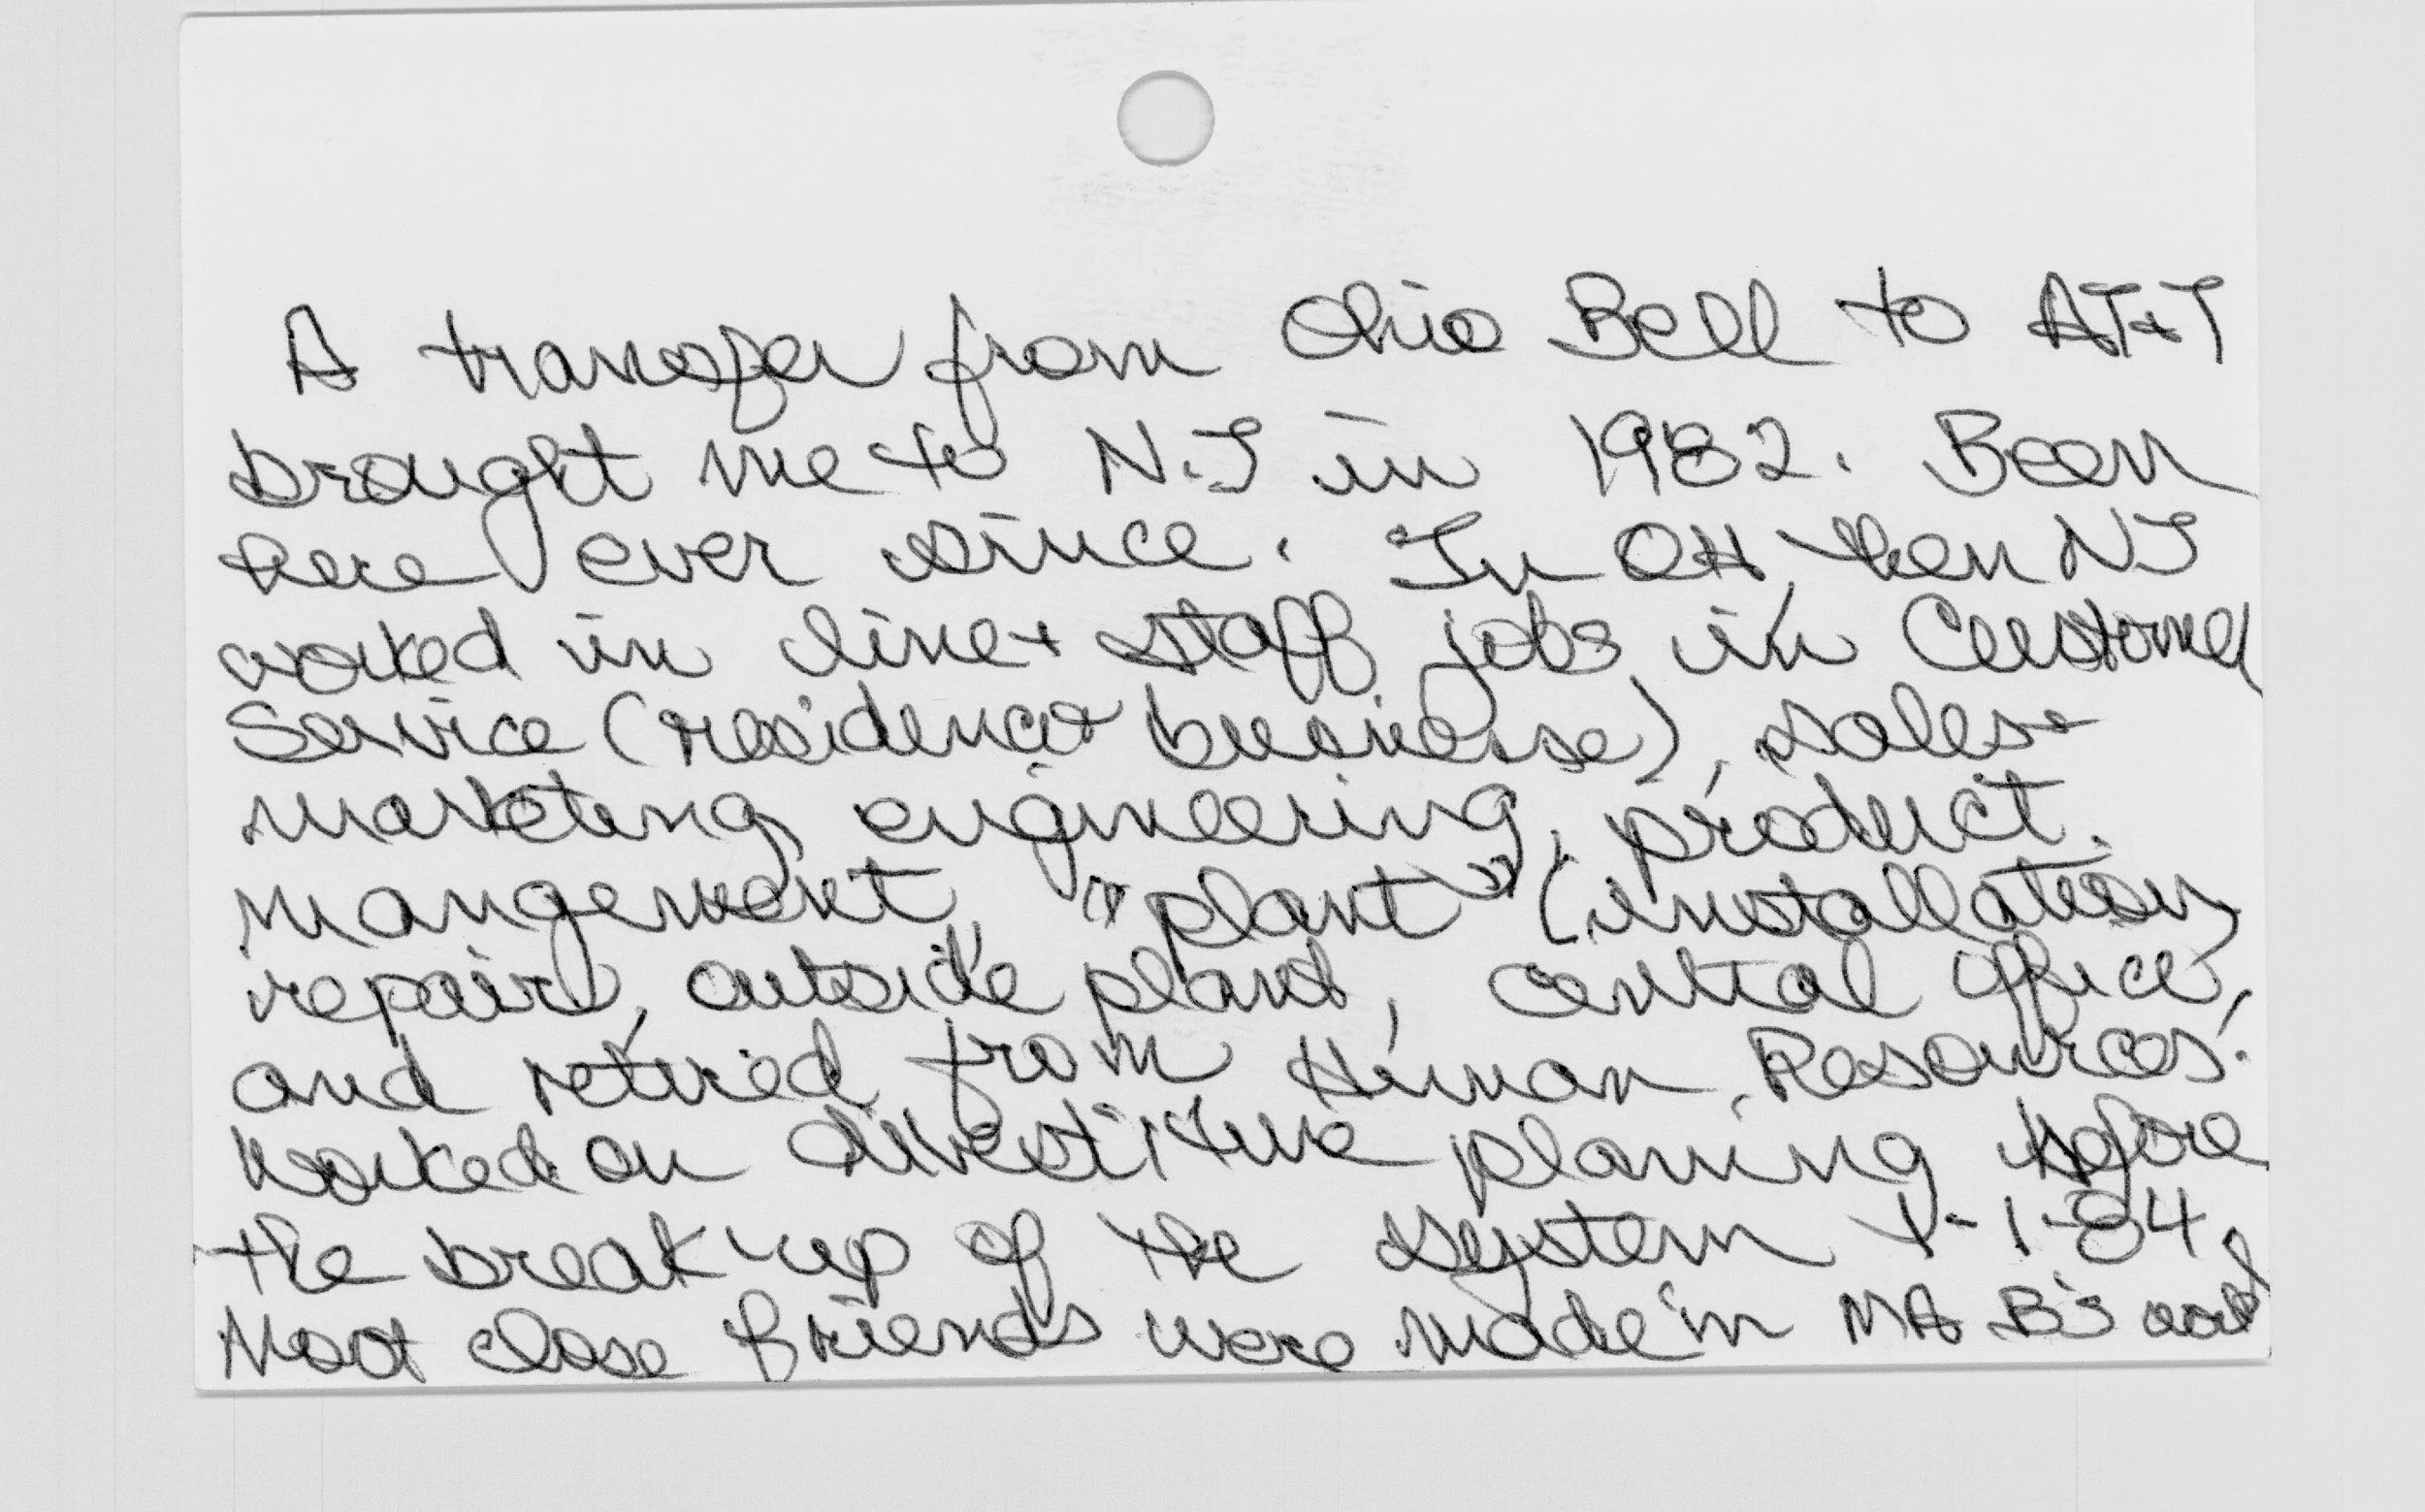 A transfer from Ohio Bell to AT&T
brought me to N.J in 1982. Been
here ever since. In OH, then NJ
worked in line + staff jobs in Customer
Service (residence + business), sales +
marketing, engineering, product
mangement, "plant" (installation,
repair, outside plant, central office,
and retired from Human Resources.
Worked on divestiture planing before
the break-up of the system 1-1-84.
Most close friends were made in MA B's